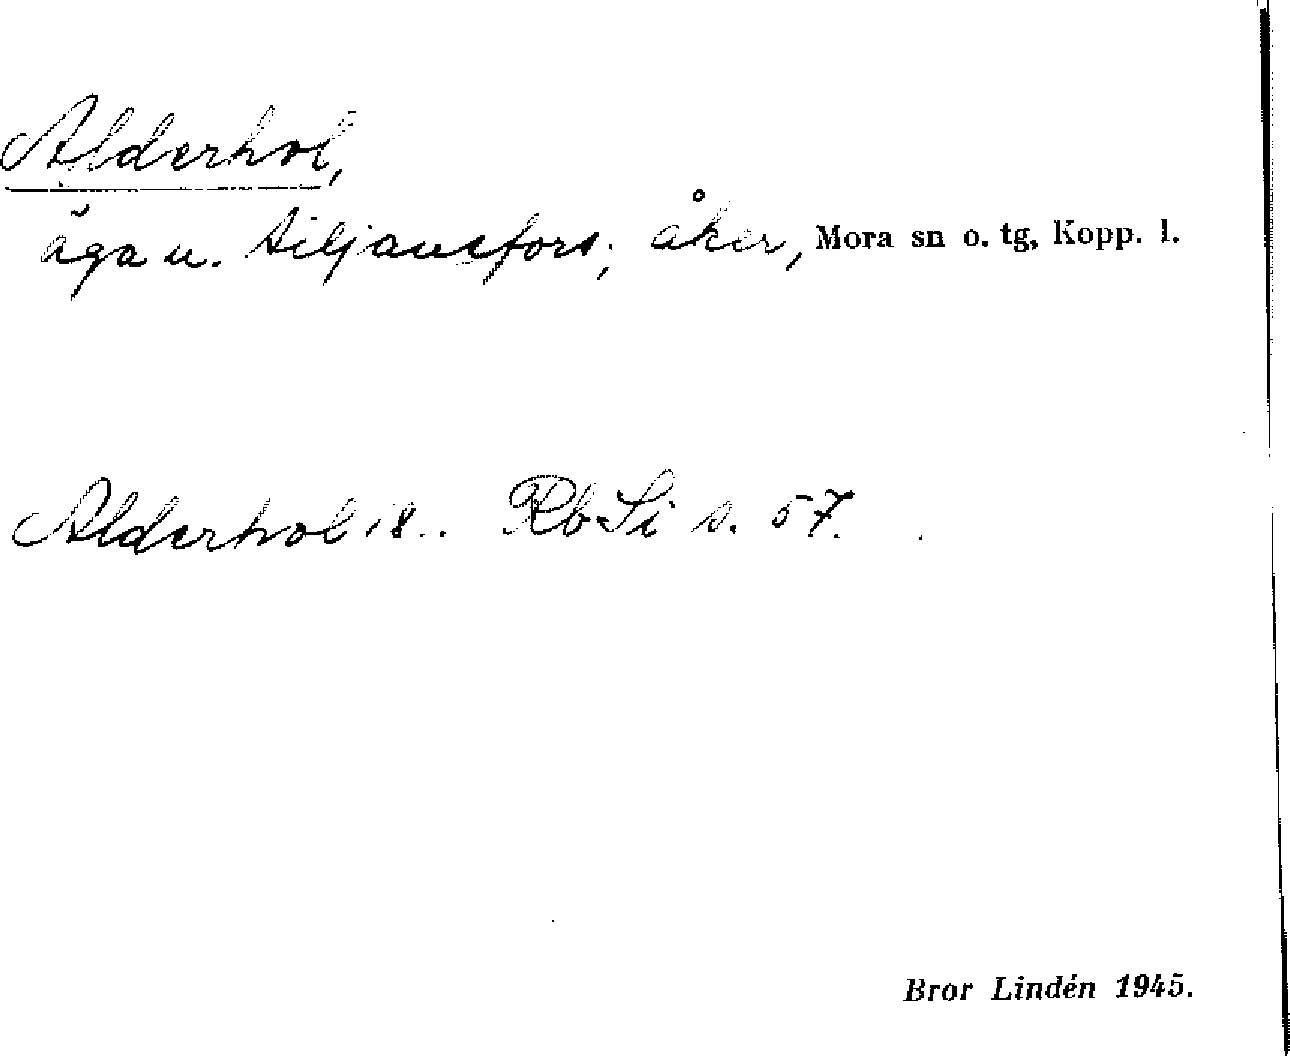 Alderhol,
äga u. Siljansfors; åker, Mora sn o. tg, Kopp. l.
Alderhol 18.. Rb Si s. 57.
Bror Lindén 1945.